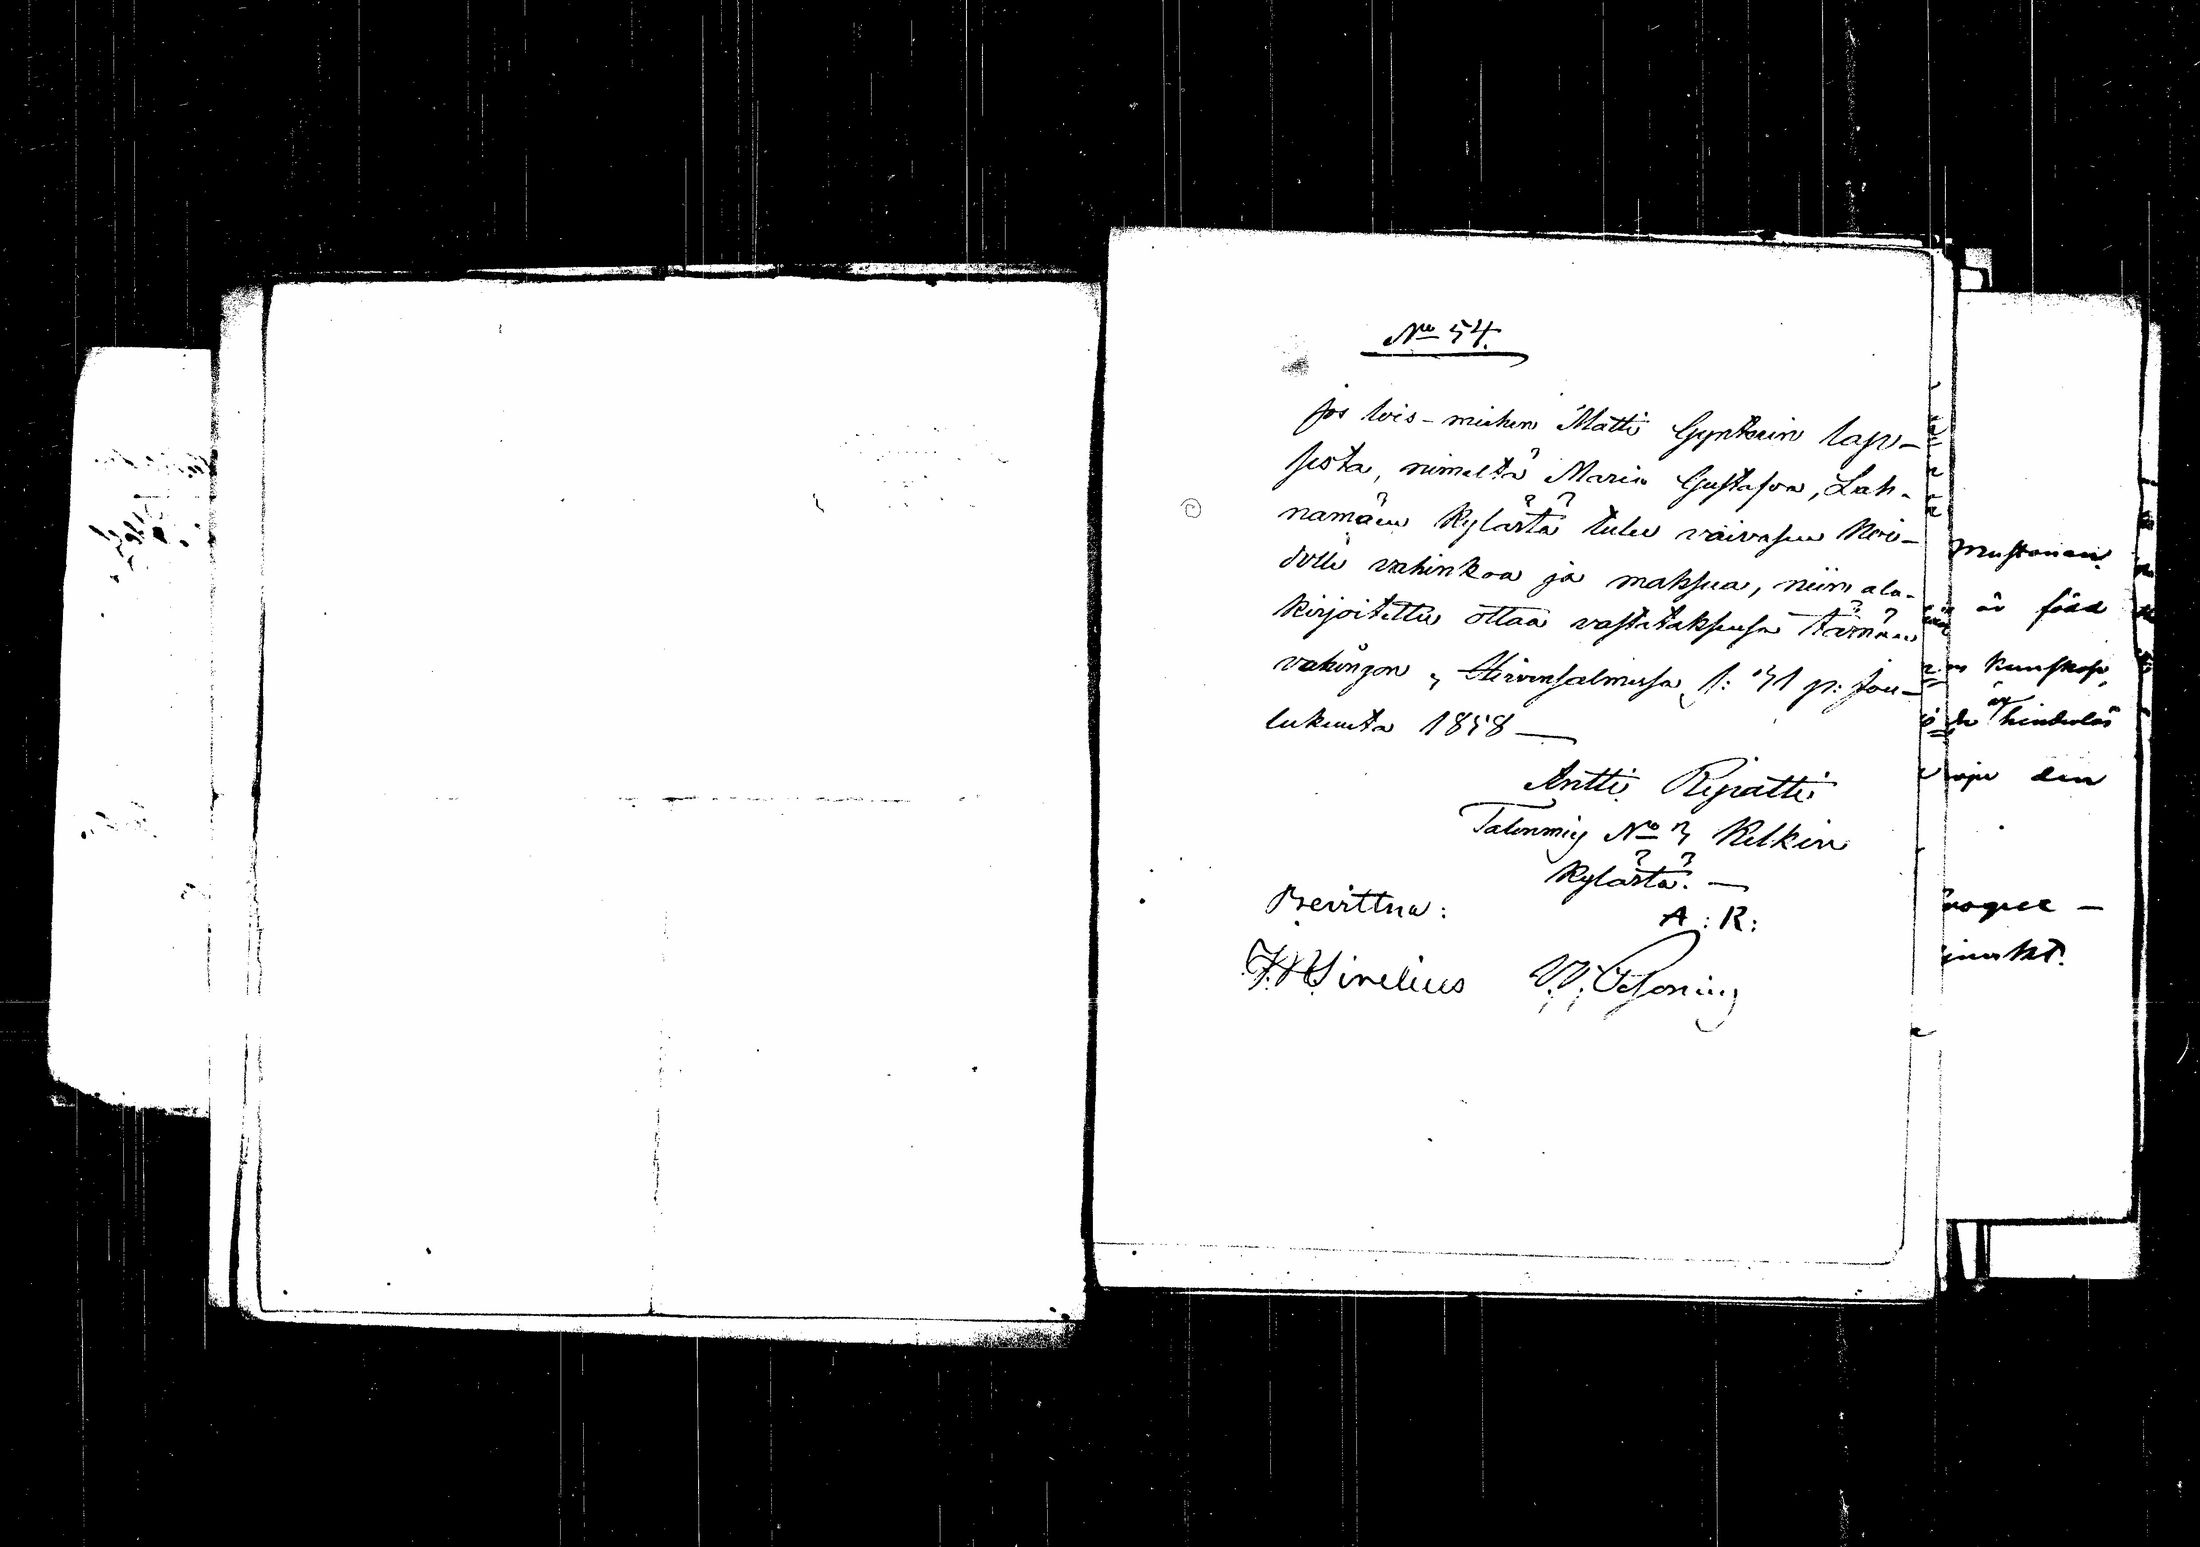 No 54.
Jos lois-miehen Matti Gynterin lap-
sesta, nimeltä Maria Gustafva, Lah-
namäen kylästä tulee vaivasten hoi-
dolle vahinkoa ja maksua, niin ala-
kirjoitettu ottaa vastataksensa tämän
vahingon, Hirvensalmessa s: 31 p: Jou-
lukuuta 1858 —
Antti Ripatti
Talonmies No 3 Kilkin
kylästä. —
A : R :
Bevittna:
Sirelius
Mustonen
är född
kunskap,
hinderlös
den